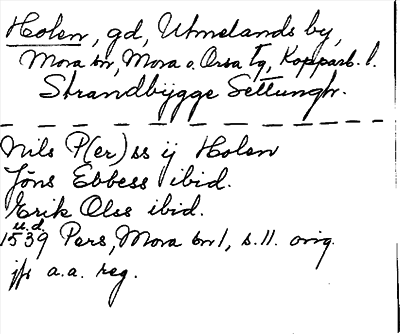 Holen, gd, Utmelands by,
Mora sn, Mora o. Orsa tg, Kopparb. l.
Strandbygge Settungh.
Nils P(er)ss ij Holen
Jöns Ebbess ibid.
Erik Olss ibid.
u.d.
1539 Pers, Mora sn 1, s. 11. orig.
jfr a.a. reg.